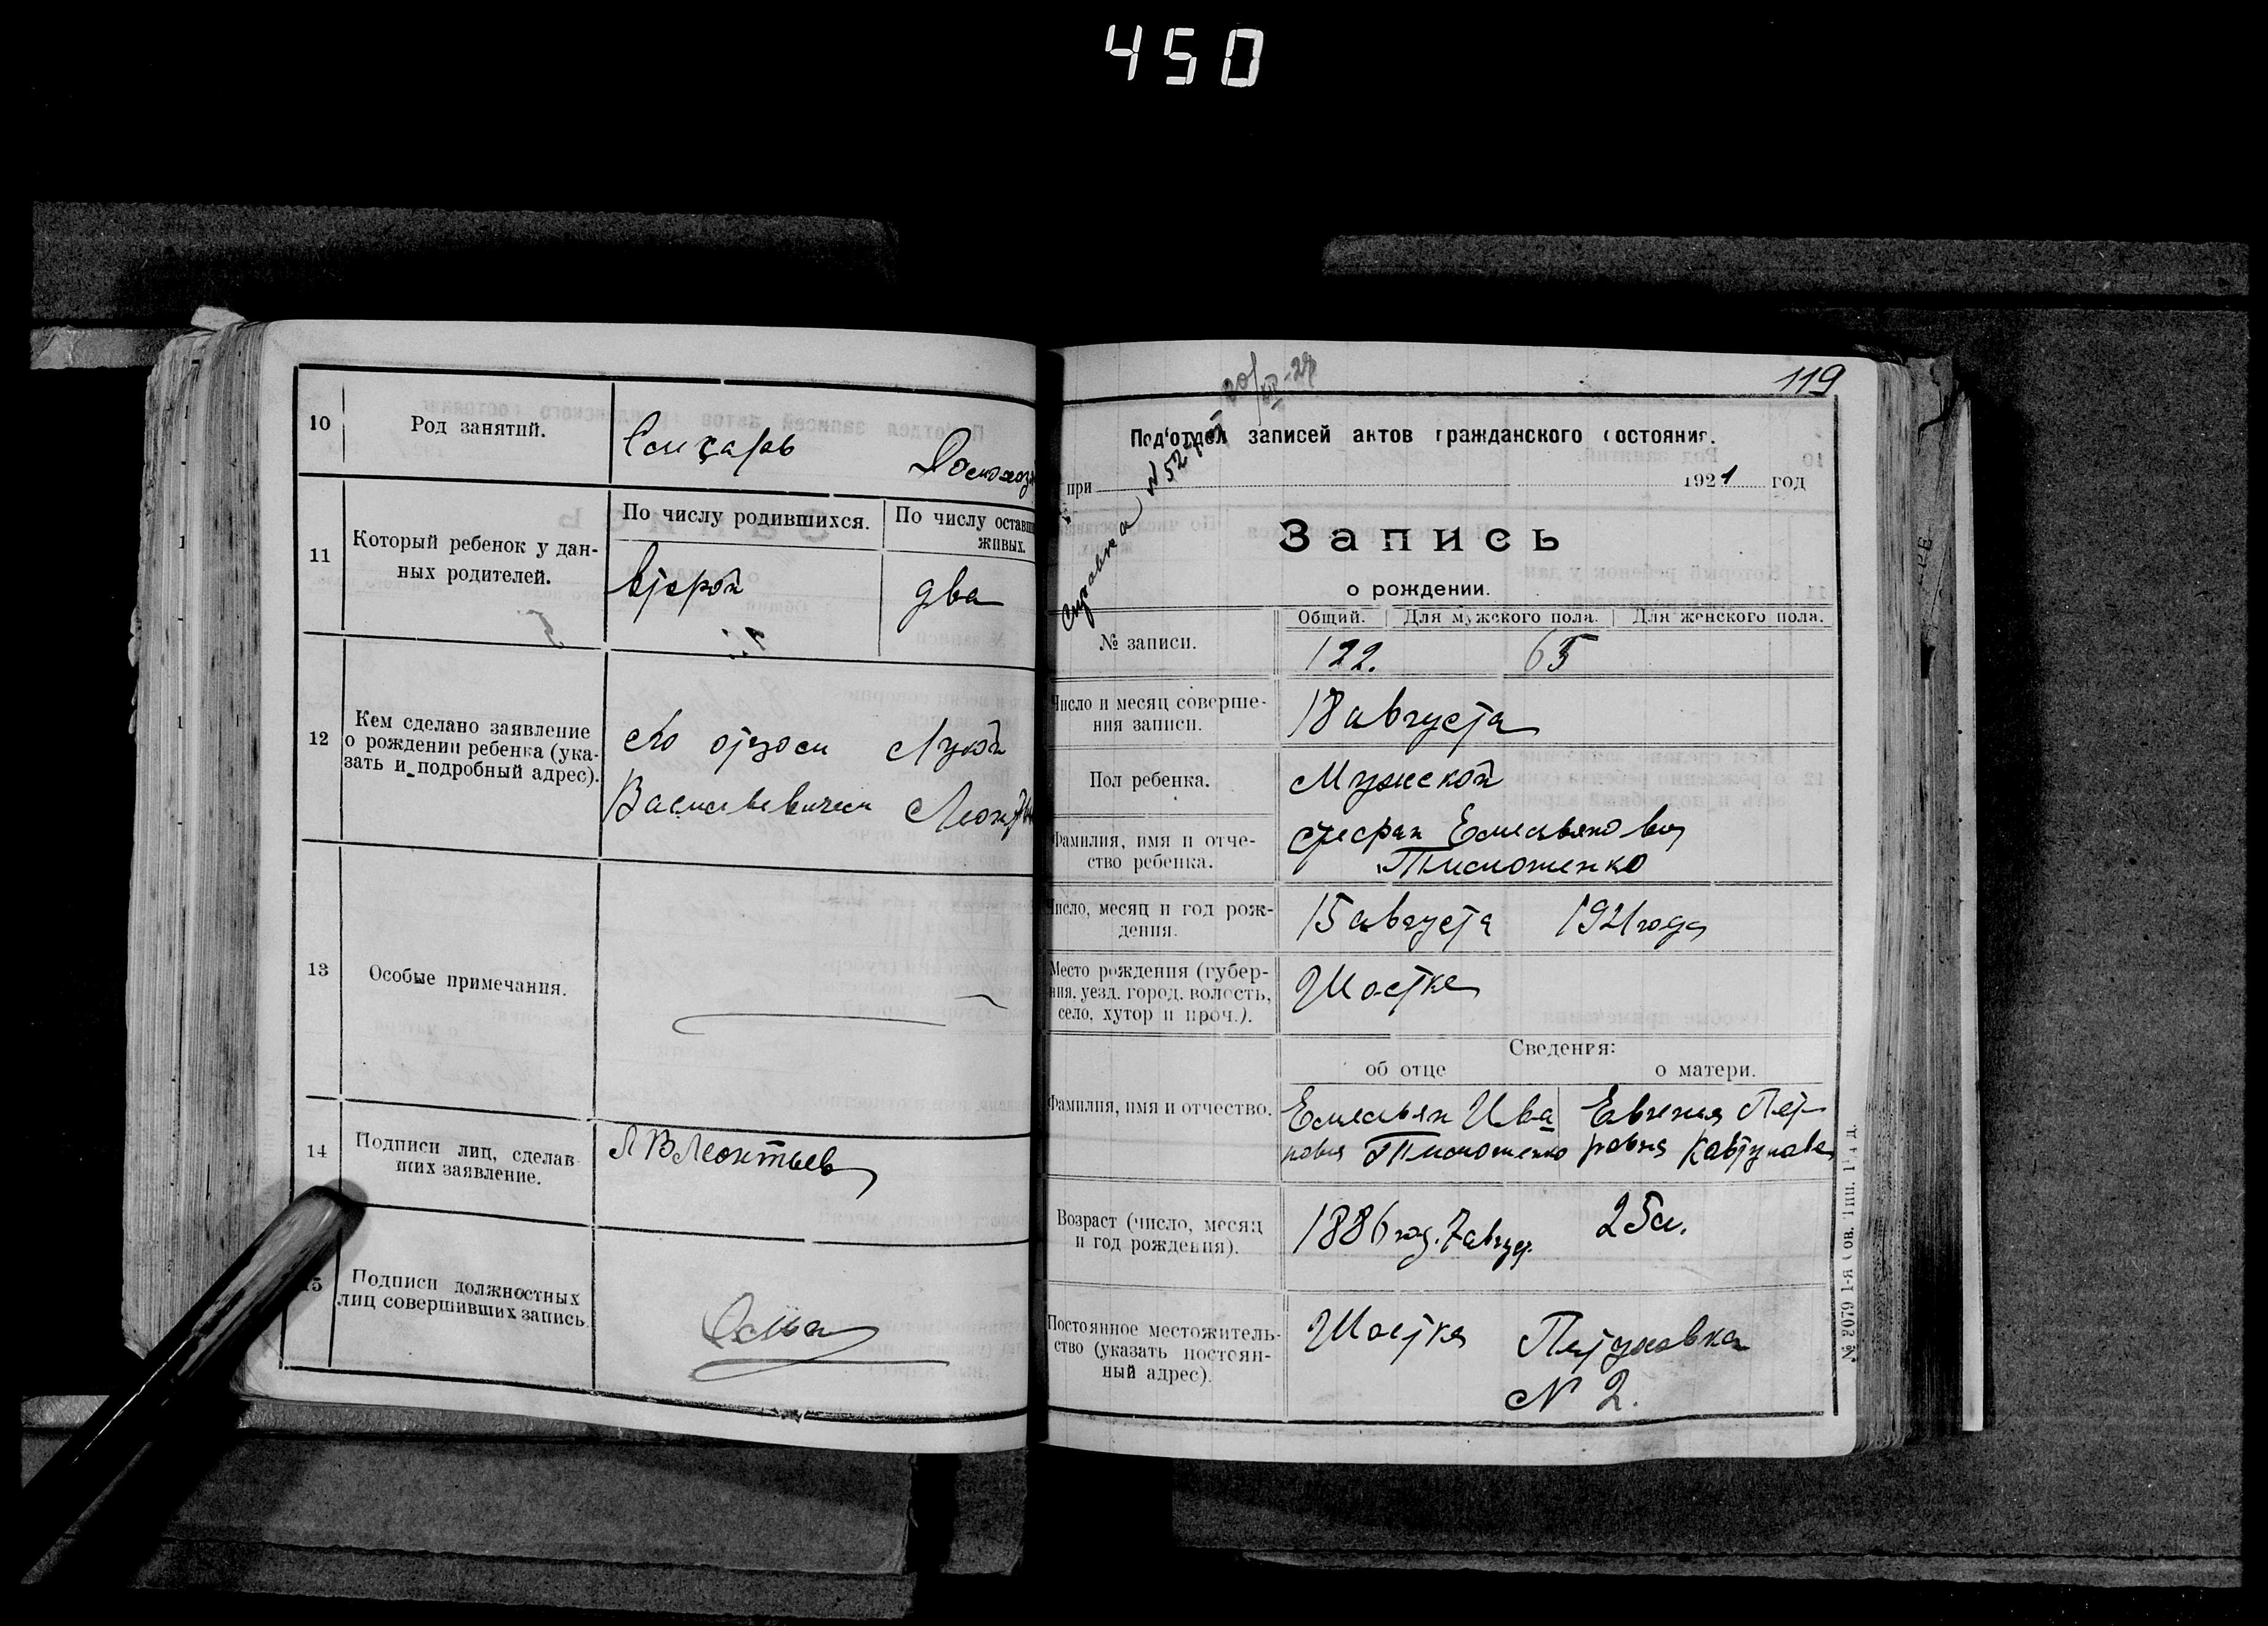 450
10
Род занятий.
Слесарь
11
Который ребенок у дан-
ных родителей.
По числу родившихся.
По числу оставш
живых.
второй
два
12
Кем сделано заявление
о рождении ребенка (ука-
зать и подробный адрес).
отцом Лукой
Васильевичем Леонтье
13
Особые примечания.
14
Подписи лиц, сделав
ших заявление.
Л В Леонтьев
15
Подписи должностных
лиц совершивших запись
119
Под'отдел записей актов гражданского состояния.
Справка
при
1921 год
Запись
о рождении.
Общий.
Для мужского пола.
Для женского пола.
№ записи.
122.
65
Число и месяц соверше-
ния записи.
18 августа
Пол ребенка.
Мужской
Фамилия, имя и отче-
ство ребенка.
Стефан Емельянович
Тимошенко
Число, месяц и год рож-
дения.
15 августа 1921 года
Место рождения (губер-
ния, уезд, город, волость,
село, хутор и проч.).
Шостка
Сведения:
об отце
о матери.
Фамилия, имя и отчество.
Емельян Ива
нович Тимошенко
Евгения Пет-
ровна Ковтунова
Возраст (число, месяц
и год рождения).
1886 год. 7 август.
25 л.
Постоянное местожитель-
ство (указать постоян-
ный адрес).
Шостка
N 2.
№ 2079 1-я Сов. Тип.